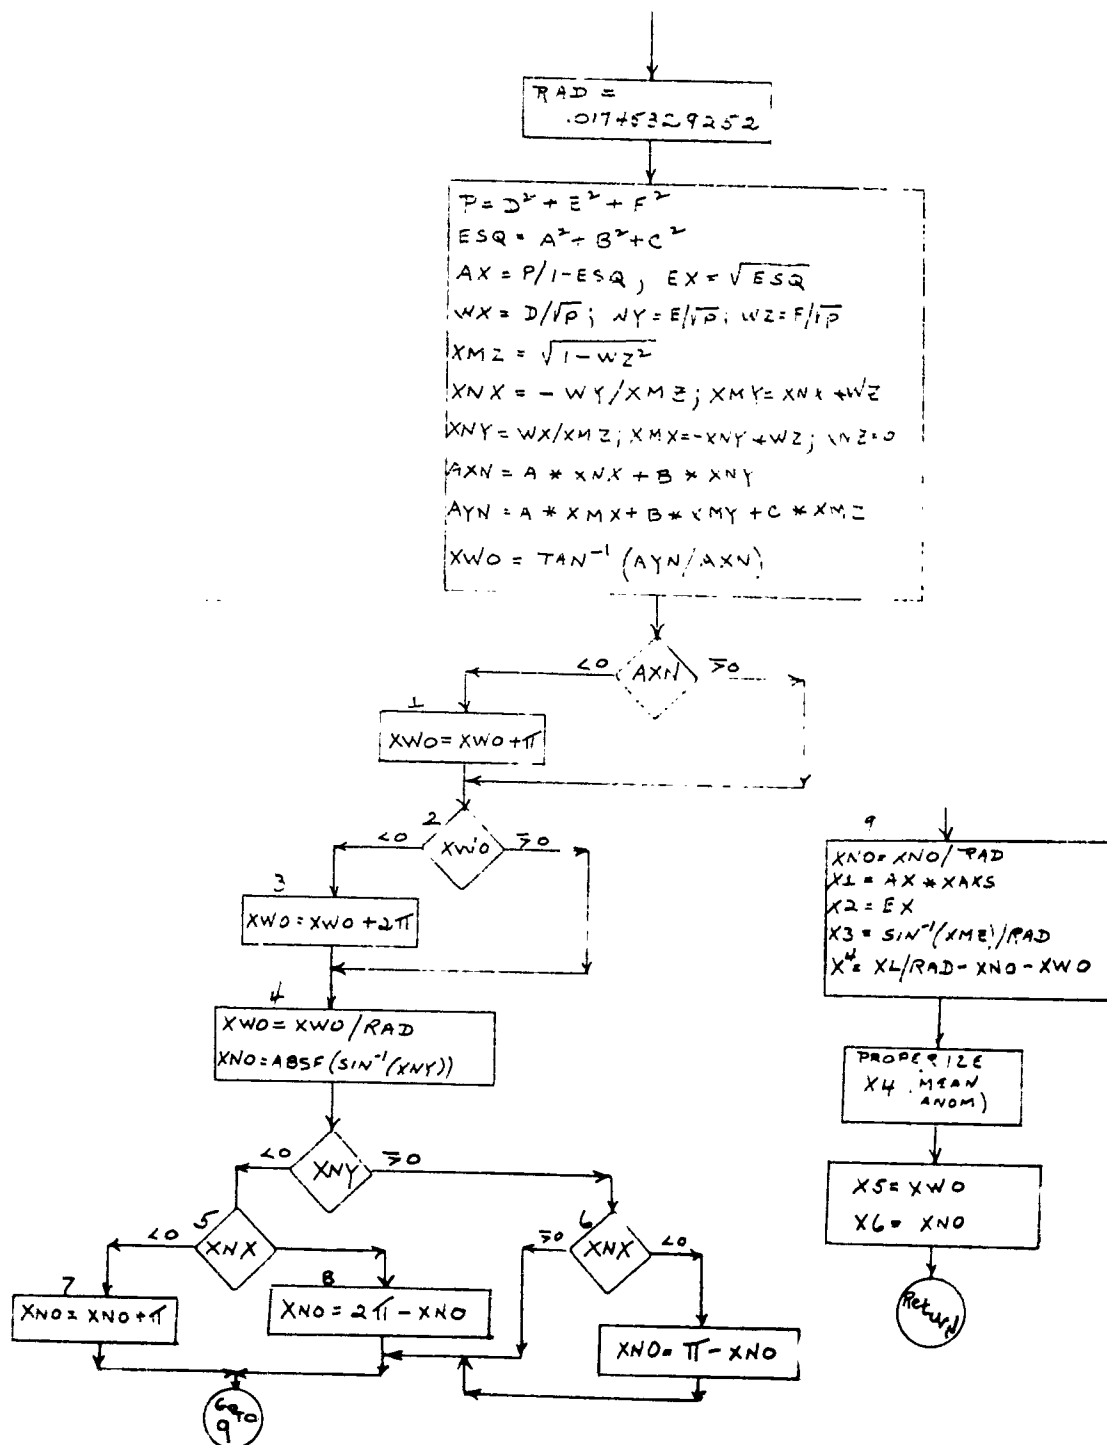 RAD =
.01745329252
P = D² + E² + F²
ESQ = A² + B² + C²
AX = P/1-ESQ, EX = √ESQ
WX = D/√P; WY = E/√P; WZ = F/√P
XMZ = √1-WZ²
XNX = - WY/XMZ; XMY = XNX * WZ
XNY = WX/XMZ; XMX = -XNY * WZ; XNZ = 0
AXN = A * XNX + B * XNY
AYN = A * XMX + B * XMY + C * XMZ
XWO = TAN⁻¹ (AYN/AXN)
<0 AXN ≥0
1
XWO = XWO + π
2
<0 XWO ≥0
3
XWO = XWO + 2π
4
XWO = XWO / RAD
XNO = ABSF (SIN⁻¹ (XNY))
<0 XNY ≥0
5
<0 XNX
6
≥0 XNX <0
7
XNO = XNO + π
8
XNO = 2π - XNO
XNO = π - XNO
GO TO
9
9
XNO = XNO / RAD
X1 = AX * XAXS
X2 = EX
X3 = SIN⁻¹ (XMZ) / RAD
X4 = XL/RAD - XNO - XWO
PROPERIZE
X4 (MEAN
ANOM)
X5 = XWO
X6 = XNO
Return